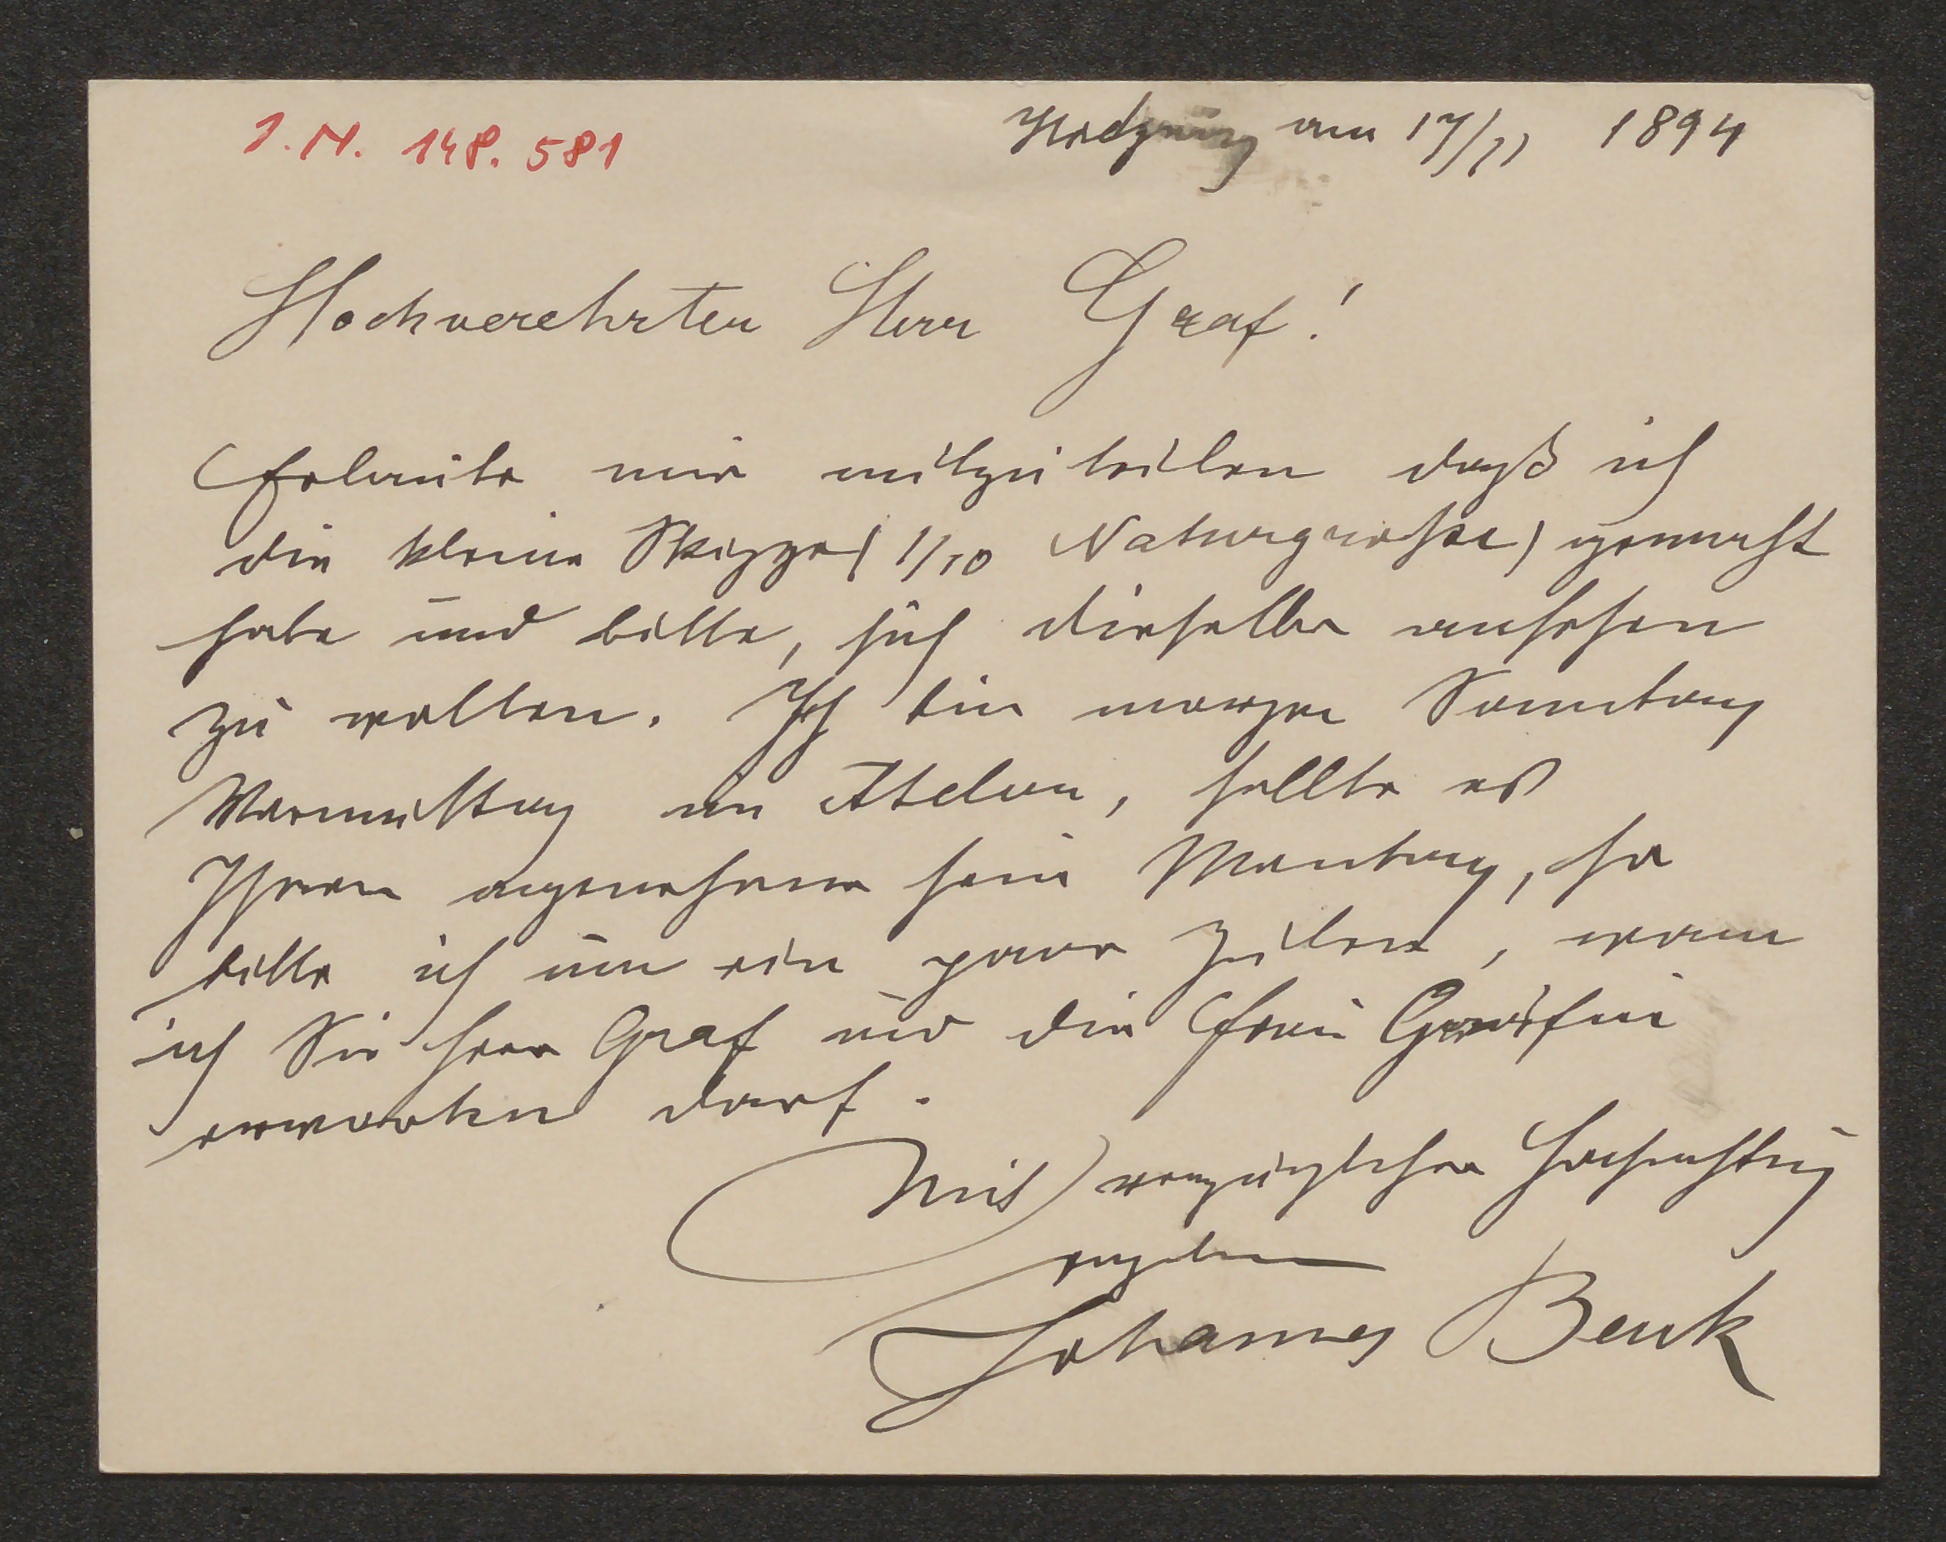 I.N. 148.581
am 17/11 1894
Hochverehrter Herr Graf!
Erlaube mir mitzuteilen daß ich
die kleine Skizze (1/10 Naturgroße) gemacht
habe und bitte, sich dieselbe ansehen
zu wollen. Ich bin morgen Sonntag
Vormittag im Atelier, sollte es
Ihnen angenehmer sein Montag, so
bitte ich um ein paar Zeilen, wann
ich Sie Herr Graf und die Frau Gräfin
erwarten darf.
Mit vorzüglicher Hochachtung
ergebener
Johannes Benk